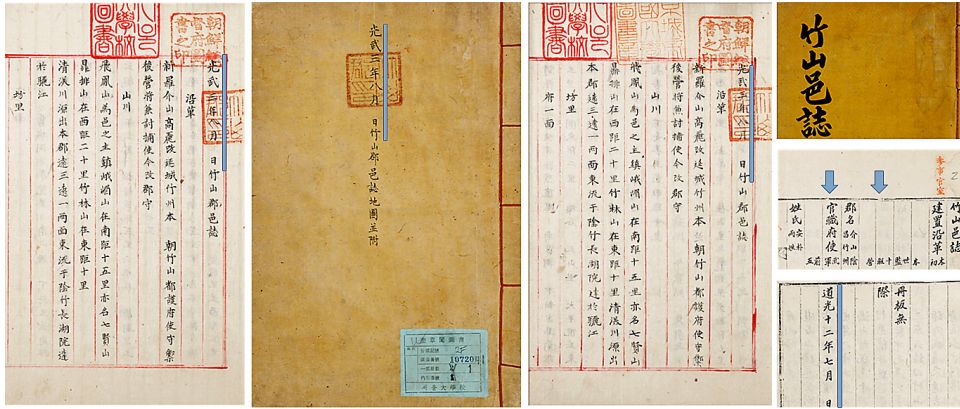 朝鮮總督府圖書之印
大學校圖書
光武三年八月 日竹山郡邑誌
沿革
新羅介山高麗改延城竹州本 朝竹山都護府使守禦
後營將兼討捕使今改郡守
山川
飛鳳山爲邑之主鎭峨嵋山在南距十五里亦名七賢山
排山在西距二十里竹林山在東距十里
清溪川源出本郡遠三遠一兩面東流于陰竹長湖院達
於驪江
坊里
光武三年八月 日竹山郡邑誌地圖並附
奎章閣圖書
10720
1
서울大學校
朝鮮總督府圖書之印
大學校圖書
光武三年八月 日竹山郡邑誌
沿革
新羅介山高麗改延城竹州本 朝竹山都護府使守禦
後營將兼討捕使今改郡守
山川
飛鳳山爲邑之主鎭峨嵋山在南距十五里亦名七賢山
排山在西距二十里竹林山在東距十里清溪川源出
本郡遠三遠一兩面東流于陰竹長湖院達於驪江
坊里
府一面
竹山邑誌
參事官室
2
竹山邑誌
建置沿革
郡名
官職府使
姓氏
冊板無
際
道光十二年七月 日